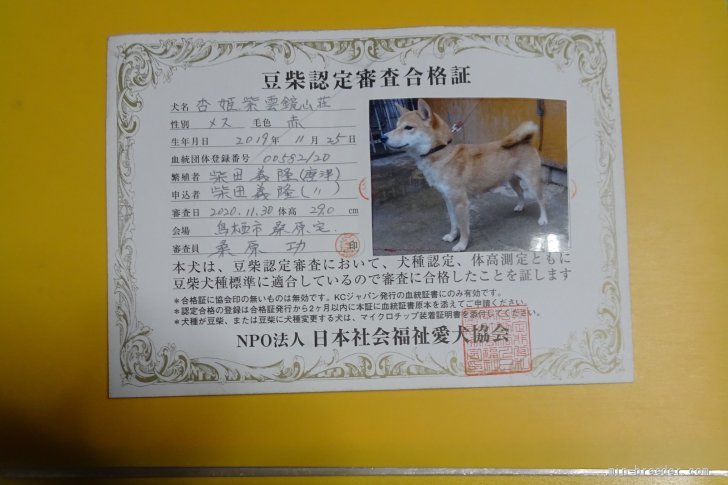 豆柴認定審査合格証
犬名 杏姫紫雲鏡山荘
性別 メス 毛色 赤
生年月日 2019年 11月 25日
血統団体登録番号 00582/20
繁殖者 柴田義隆(唐津)
申込者 柴田義隆(〃)
審査日 2020.11.30 体高 29.0 cm
会場 鳥栖市 桑原宅.
審査員 桑原 功 印
本犬は、豆柴認定審査において、犬種認定、体高測定ともに
豆柴犬種標準に適合しているので審査に合格したことを証します
*合格証に協会印の無いものは無効です。KCジャパン発行の血統証書にのみ有効です。
*認定合格の登録は合格証発行から2ヶ月以内に本証に血統証書原本を添えてご申請ください。
*犬種が豆柴、または豆柴に犬種変更する犬は、マイクロチップ装着証明書を添付してください。
NPO法人 日本社会福祉愛犬協会
www.min-breeder.com